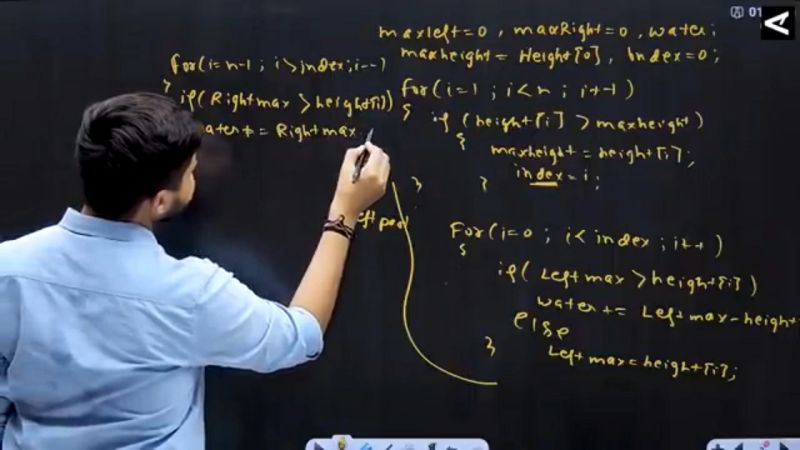 maxleft=0, maxRight=0, water;
maxheight = Height[0], Index=0;
for(i=1; i<n; i++)
{
if (height[i] > maxheight)
{
maxheight = height[i];
index = i;
}
}
For(i=0; i<index; i++)
{
if(Leftmax > height[i])
water += Leftmax-height
else
Leftmax = height[i];
}
for(i=n-1; i>index; i--)
if(Rightmax > height[i])
water += Rightmax
left part
01